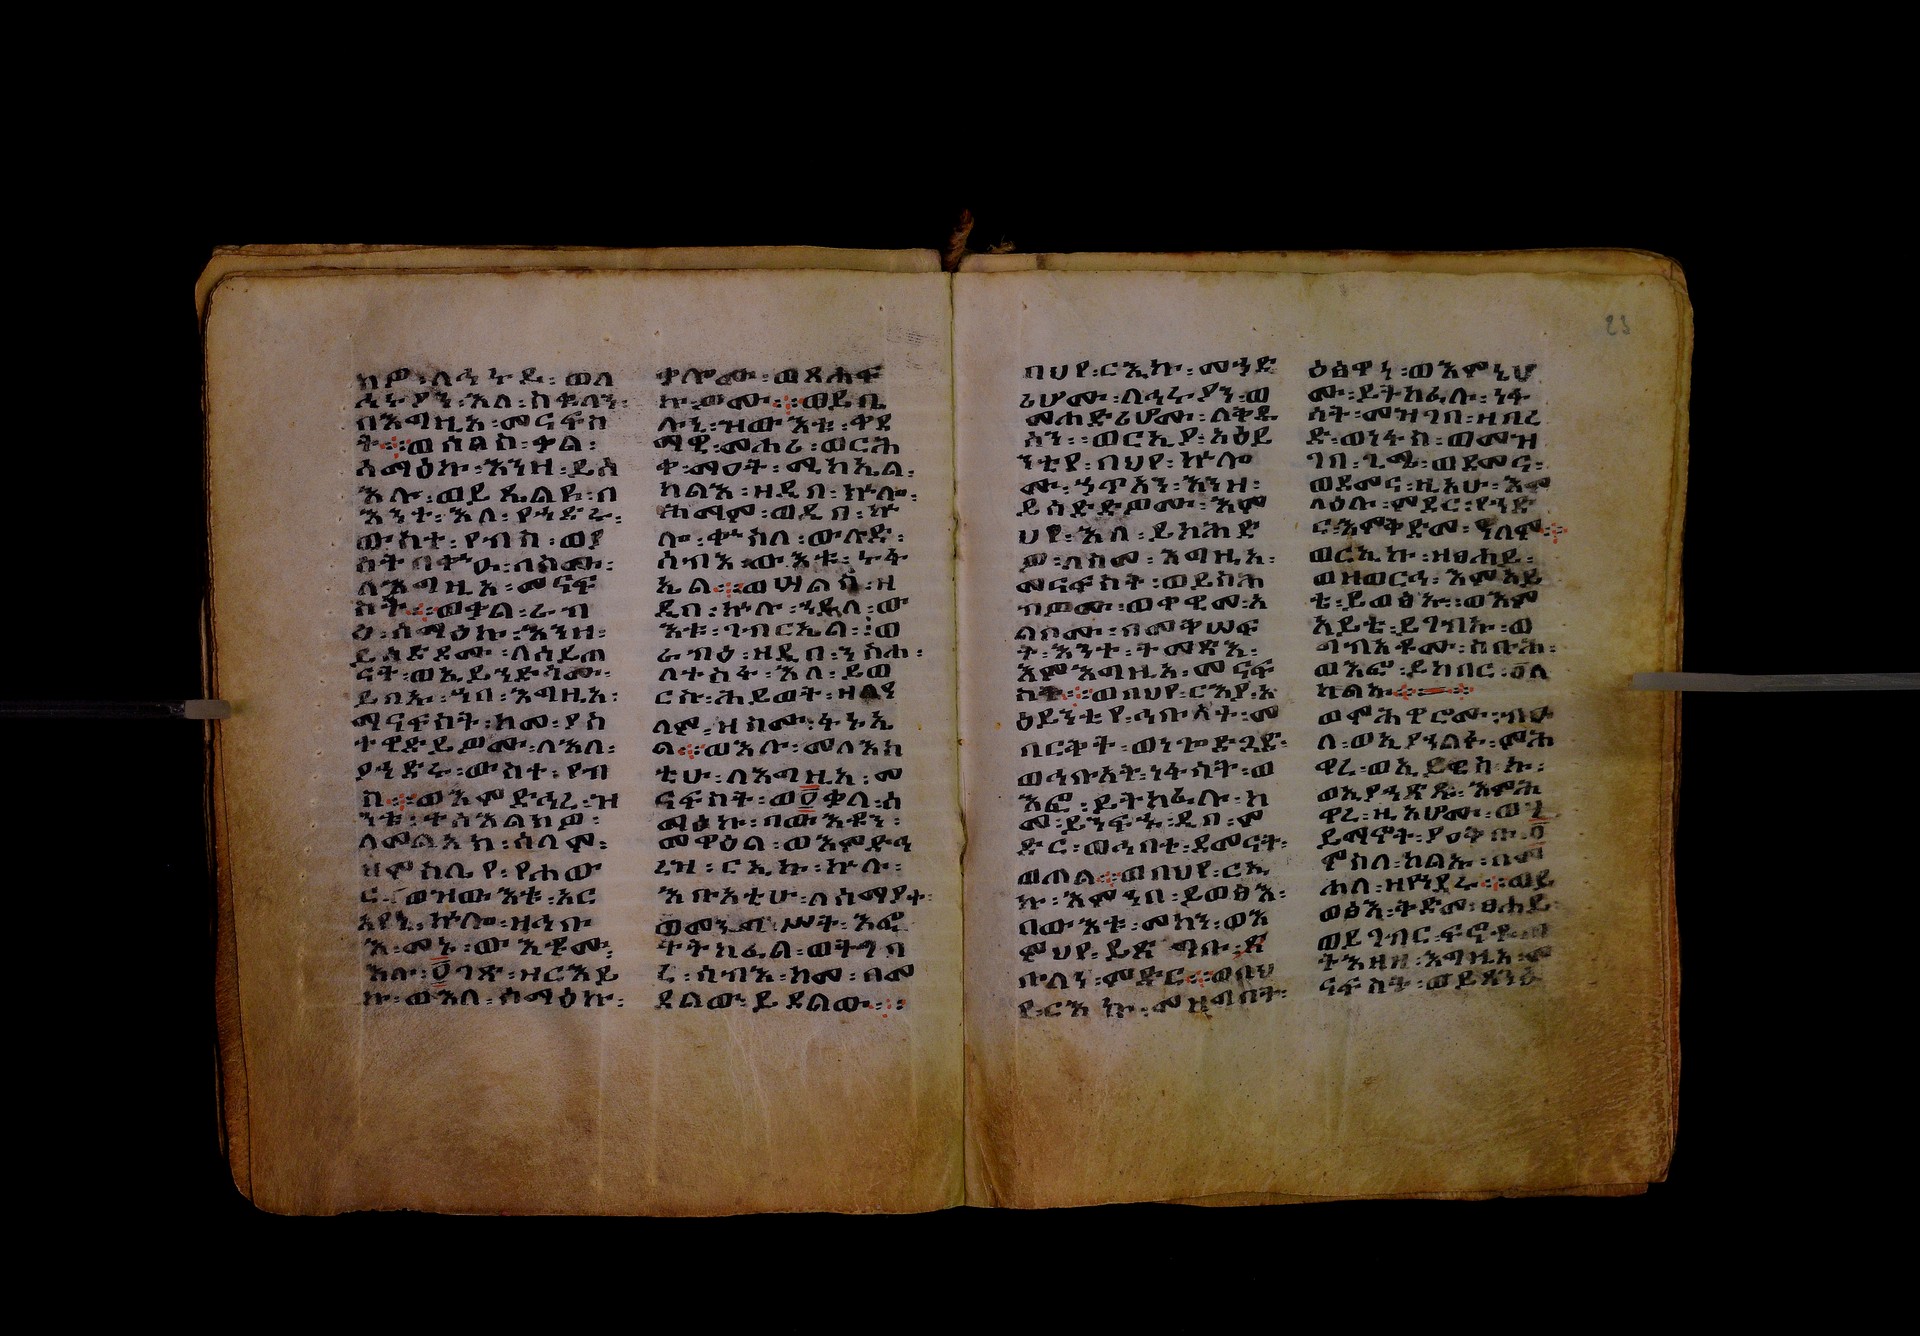 ክዎ፡ለኅሩይ፡ወለ
ኅሩያን፡እለ፡ስቁላን፡
በእግዚአ፡መናፍስ
ት፨ወሰልስ፡ቃል፡
ሰማዕኩ፡እንዘ፡ይስ
እሉ፡ወይጼልዩ፡በ
እንተ፡እለ፡የኀድሩ፡
ውስተ፡የብስ፡ወያ
ስተበቍዑ፡በስሙ፡
ለእግዚአ፡መናፍ
ስት፨ወቃል፡ራብ
ዕ፡ሰማዕኩ፡እንዘ፡
ይሰድዶሙ፡ለሰይጣ
ናት፡ወኢይኀድጎሙ፡
ይባኡ፡ኀበ፡እግዚአ፡
መናፍስት፡ከመ፡ያስ
ተዋድይዎሙ፡ለእለ፡
የኀድሩ፡ውስተ፡የብ
ስ፨ወእምድኅረ፡ዝ
ንቱ፡ተስእልክዎ፡
ለመልአከ፡ሰላም፡
ዘምስሌየ፡የሐው
ር፡ወዝውእቱ፡አር
አየኒ፡ኵሎ፡ዘኅቡ
እ፡መኑ፡ውእቶሙ፡
እሉ፡፬ገጽ፡ዘርእይ
ኩ፡ወእለ፡ሰማዕኩ፡
ቃሎሙ፡ወጸሐፍ
ክዎሙ፨ወይቤ
ለኒ፡ዝውእቱ፡ቀዳ
ማዊ፡መሐሪ፡ወርሑ
ቀ፡መዐት፡ሚካኤል፡
ካልእ፡ዘዲበ፡ኵሎ፡
ሕማም፡ወዲበ፡ኵ
ሎ፡ቍስለ፡ውሉድ፡
ሰብእ፡ውእቱ፡ሩፋ
ኤል፨ወሣልስ፡ዘ
ዲበ፡ኵሉ፡ኀይለ፡ው
እቱ፡ገብርኤል፡ወ
ራብዕ፡ዘዲበ፡ንስሐ፡
ለተስፋ፡እለ፡ይወ
ርሱ፡ሕይወት፡ዘለዓ
ለም፡ዘስሙ፡ፋኑኤ
ል፨ወእሉ፡መላእክ
ቲሁ፡ለእግዚአ፡መ
ናፍስት፡ወ፬ቃለ፡ሰ
ማዕኩ፡በውእቶን፡
መዋዕል፡ወእምድኅ
ረዝ፡ርኢኩ፡ኵሉ፡
ኅቡአቲሁ፡ለሰማያት፡
ወመንግሥት፡እፎ፡
ትትከፈል፡ወትግባ
ረ፡ሰብእ፡ከመ፡በመ
ዳልው፡ይደልው፨
በህየ፡ርኢኩ፡መኃድ
ሪሆሙ፡ለኅሩያን፡ወ
መሐድሪሆሙ፡ለቅዱ
ሳን፡ወርእያ፡አዕይ
ንቲየ፡በህየ፡ኵሎ
ሙ፡ኃጥአን፡እንዘ፡
ይሰድድዎሙ፡እም
ህየ፡እለ፡ይክሕድ
ዎ፡ለስመ፡እግዚአ፡
መናፍስት፡ወይስሕ
ብዎሙ፡ወቀዊመ፡አ
ልቦሙ፡በመቅሠፍ
ት፡እንተ፡ትመጽእ፡
እምእግዚአ፡መናፍ
ስት፨ወበህየ፡ርእያ፡አ
ዕይንቲየ፡ኅቡአተ፡መ
ባርቅት፡ወነጐድጓድ፡
ወኅቡአት፡ነፋሳት፡ወ
እፎ፡ይትከፈሉ፡ከ
መ፡ይንፍኁ፡ዲበ፡ም
ድር፡ወኅቡተ፡ደመናት፡
ወጠል፨ወበህየ፡ርኢ
ኩ፡እምኀበ፡ይወፅእ፡
በውእቱ፡መካን፡ወእ
ምህየ፡ይጸግቡ፡ጸ
ቡለን፡ምድር፨ወበህ
የ፡ርኢኩ፡መዛግብተ፡
ዕፅዋነ፡ወእምኔሆ
ሙ፡ይትከፈሉ፡ነፋ
ሳት፡መዝገበ፡ዘበረ
ድ፡ወነፋስ፡ወመዝ
ገበ፡ጊሜ፡ወደመና፡
ወደመና፡ዚአሁ፡እም
ላዕሉ፡ምድር፡የኀድ
ር፡እምቅድመ፡ዓለም፨
ወርኢኩ፡ዘፀሐይ፡
ወዘወርኅ፡እምአይ
ቴ፡ይወፅኡ፡ወእም
አይቴ፡ይገብኡ፡ወ
ግብአቶሙ፡ስቡሕ፡
ወእፎ፡ይከብር፡፩ለ
ካልኡ፨
ወምሕዋሮሙ፡ብዑ
ለ፡ወኢያኀልፉ፡ምሕ
ዋረ፡ወኢይዌስኩ፡
ወኢያኀጽጹ፡እምሕ
ዋረ፡ዚአሆሙ፡ወሃ
ይማኖተ፡የዐቅቡ፡፩
ምስለ፡ካልኡ፡በመ
ሐላ፡ዘየነበሩ፨ወይ
ወፅእ፡ቅድመ፡ፀሐይ፡
ወይገብር፡ፍኖቶ፡በ
ትእዛዘ፡እግዚአ፡መ
ናፍስት፡ወይጸንዕ
23